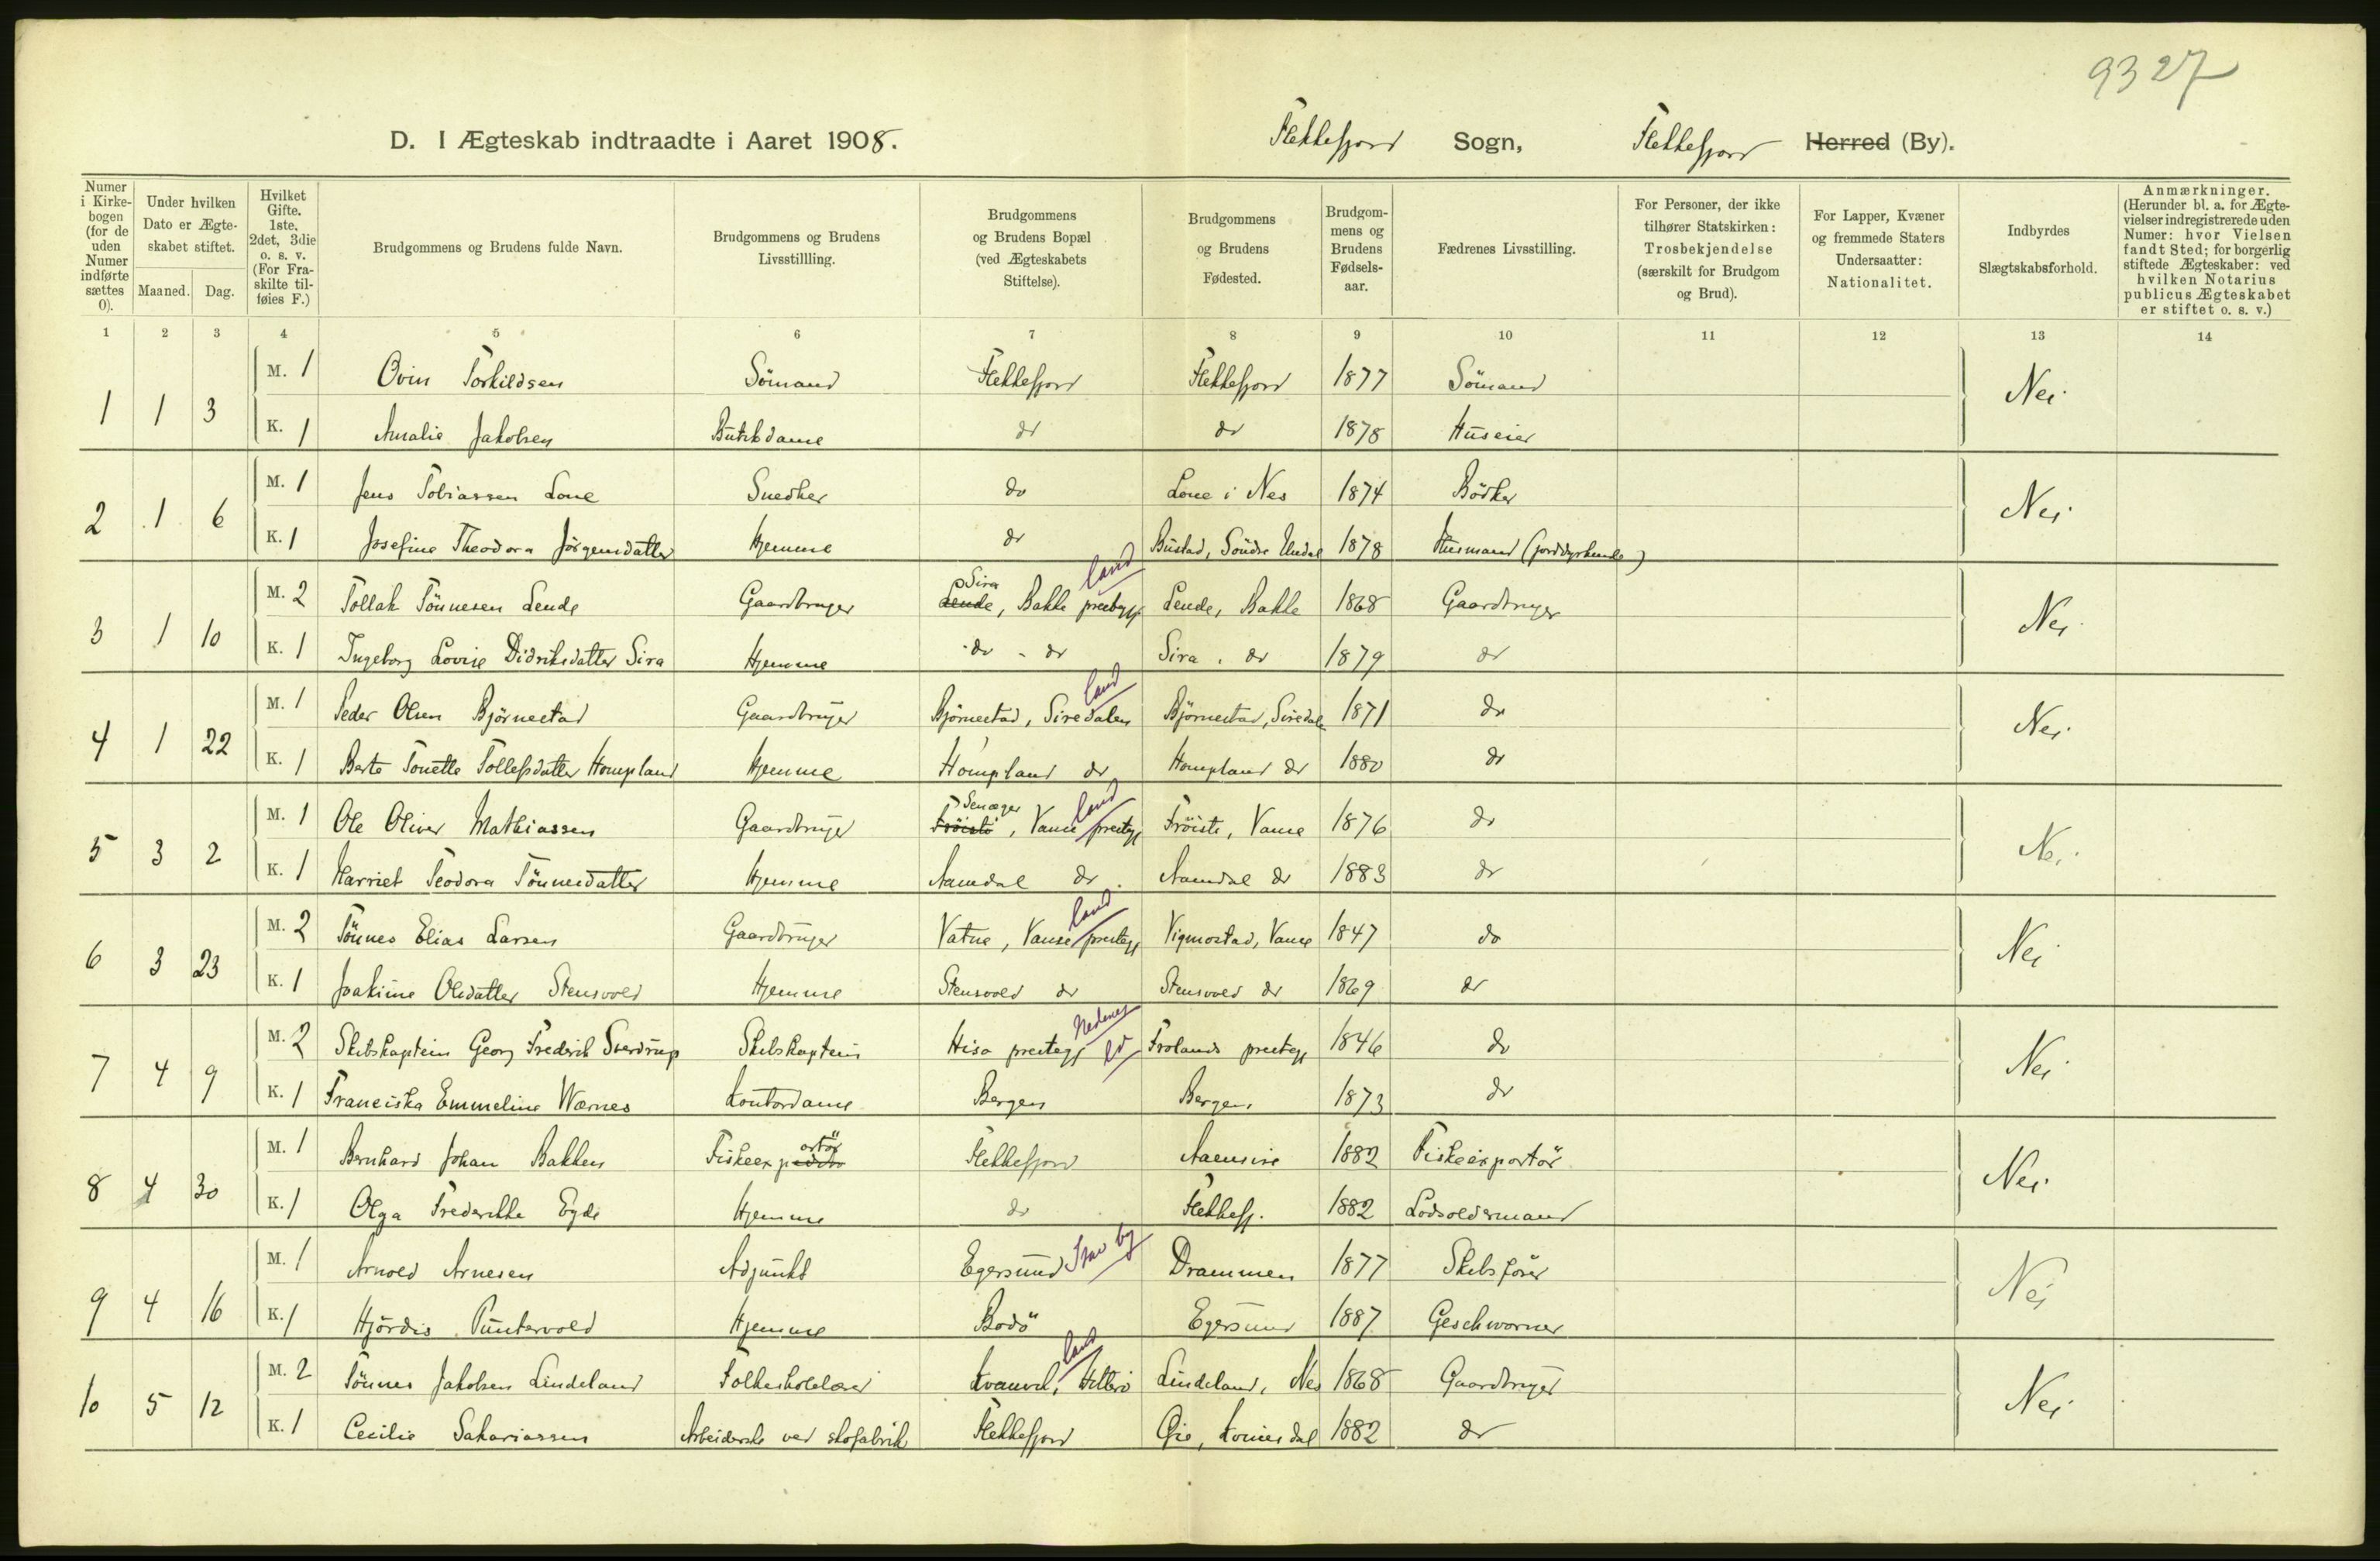 9327
D. I Ægteskab indtraadte i Aaret 1908. Flekkefjord Sogn, Flekkefjord Herred (By).
Numer i Kirkebogen (for de uden Numer indførte sættes 0).
Under hvilken Dato er Ægteskabet stiftet.
Maaned. Dag.
Hvilket Gifte. 1ste, 2det, 3die o. s. v. (For Fraskilte tilføies F.)
Brudgommens og Brudens fulde Navn.
Brudgommens og Brudens Livsstillling.
Brudgommens og Brudens Bopæl (ved Ægteskabets Stiftelse).
Brudgommens og Brudens Fødested.
Brudgommens og Brudens Fødselsaar.
Fædrenes Livsstilling.
For Personer, der ikke tilhører Statskirken: Trosbekjendelse (særskilt for Brudgom og Brud).
For Lapper, Kvæner og fremmede Staters Undersaatter: Nationalitet.
Indbyrdes Slægtskabsforhold.
Anmærkninger. (Herunder bl. a. for Ægtevielser indregistrerede uden Numer: hvor Vielsen fandt Sted; for borgerlig stiftede Ægteskaber: ved hvilken Notarius publicus Ægteskabet er stiftet o. s. v.)
1 2 3 4 5 6 7 8 9 10 11 12 13 14
1 1 3 M. 1 Ovin Torkildsen Sömand Flekkefjord Flekkefjord 1877 Sömand Nei
K. 1 Amalie Jakobsen Butikdame do do 1878 Huseier
2 1 6 M. 1 Jens Tobiassen Lone Snedker do Lone i Nes 1874 Bödker Nei
K. 1 Josefine Theodora Jörgensdatter Hjemme do Bustad, Söndre Undal 1878 Husmand (jorddyrkende)
3 1 10 M. 2 Tollak Tönnesen Lende Gaardbruger Lende Sira, Bakke prestegj land Lende, Bakke 1868 Gaardbruger Nei
K. 1 Ingeborg Lovise Didriksdatter Sira Hjemme do - do Sira, do 1879 do
4 1 22 M. 1 Peder Olsen Björnestad Gaardbruger Björnestad, Siredalen land Björnestad, Siredale 1871 do Nei
K. 1 Berte Tonette Tollefsdatter Hompland Hjemme Hompland do Hompland do 1880 do
5 3 2 M. 1 Ole Oliver Mathiassen Gaardbruger Fröiste, Vanse prestegj land Fröiste, Vanse 1876 do Nei
K. 1 Harriet Teodora Tönnesdatter Hjemme Aamdal do Aamdal do 1883 do
6 3 23 M. 2 Tönnes Elias Larsen Gaardbruger Vatne, Vanse prestegj land Vigmostad, Vanse 1847 do Nei
K. 1 Joakime Olsdatter Stensvold Hjemme Stensvold do Stensvold do 1869 do
7 4 9 M. 2 Skibskaptein Georg Frederik Sverdrup Skibskaptein Hisø prestegj Nedenes Frolands prestegj 1846 do Nei
K. 1 Franciska Emmeline Wernes Kontordame Bergen Bergen 1873 do
8 4 30 M. 1 Bernhard Johan Bakken Fiskeexportör Flekkefjord Aaensire 1882 Fiskeexportör Nei
K. 1 Olga Frederikke Eyde Hjemme do Flekkefj. 1882 Lodsoldermand
9 4 16 M. 1 Arnold Arnesen Adjunkt Egersund Drammen 1877 Skibsförer Nei
K. 1 Hjördis Puntervold Hjemme Bodö Egersund 1887 Geschworner
10 5 12 M. 2 Tönnes Jakobsen Lindeland Folkeskolelærer Hitterö land Lindeland, Nes 1868 Gaardbruger Nei
K. 1 Cecilie Sakariassen Arbeiderske ved skofabrik Flekkefjord Gie, Kvinesdal 1882 do